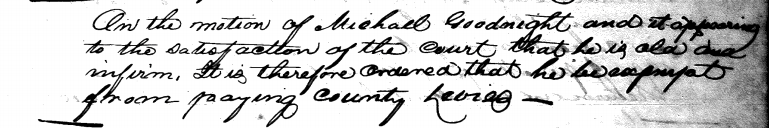 On the motion of Michael Goodnight and it appearing
to the satisfaction of the court that he is old and
infirm, It is therefore ordered that he be exempt
from paying county Levies —